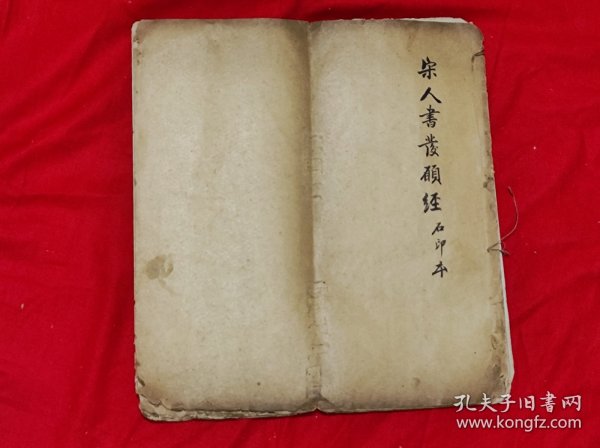 宋人書發願經 石印本
孔夫子旧书网
www.kongfz.com